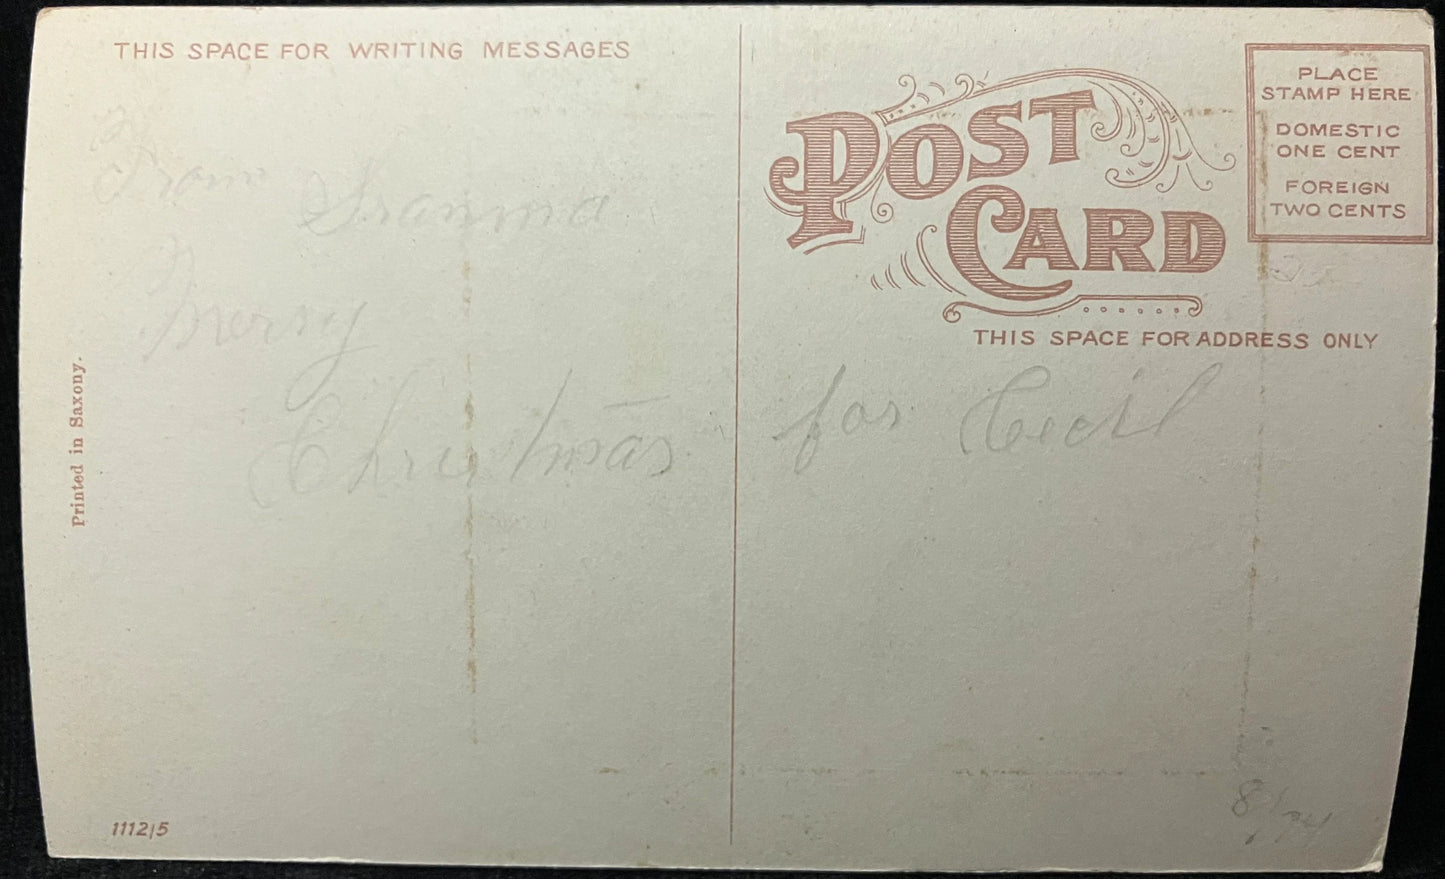 THIS SPACE FOR WRITING MESSAGES
From Gramma
Merry
Christmas for Cecil
POST
CARD
THIS SPACE FOR ADDRESS ONLY
PLACE
STAMP HERE
DOMESTIC
ONE CENT
FOREIGN
TWO CENTS
Printed in Saxony.
1112/5